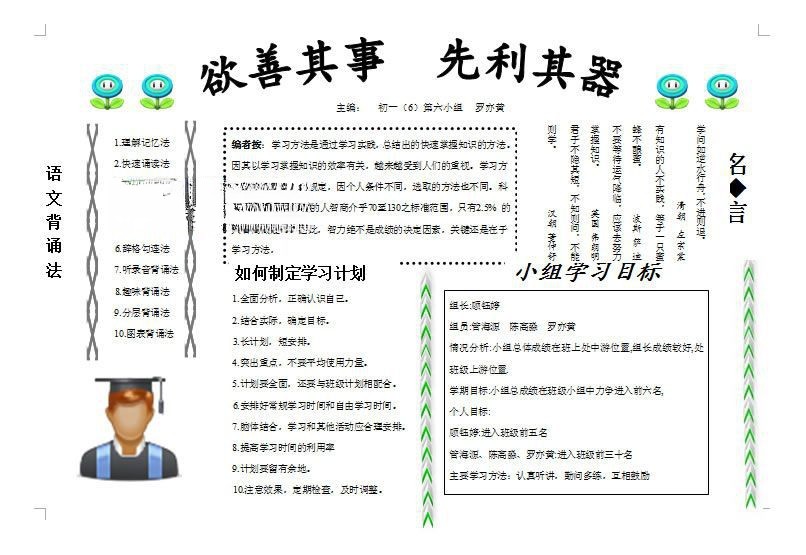 欲善其事 先利其器
主编： 初一（6）第六小组 罗亦黄
语文背诵法
1.理解记忆法
2.快速诵读法
6.辞格勾连法
7.听录音背诵法
8.趣味背诵法
9.分层背诵法
10.图表背诵法
编者按：学习方法是通过学习实践，总结出的快速掌握知识的方法。
因其以学习掌握知识的效率有关，越来越受到人们的重视。学习方
规定，因个人条件不同，选取的方法也不同。科
的人智商介乎70至130之标准范围，只有2.5% 的
比，智力绝不是成绩的决定因素，关键还是在于
学习方法。
名◆言
学问如逆水行舟，不进则退。
清朝 左宗棠
有知识的人不实践，等于一只蜜
蜂不酿蜜。 波斯 萨迪
不要等待运气降临，应该去努力
掌握知识。 英国 弗朗明
君子不隐其短，不知则问，不能
则学。 汉朝 董仲舒
如何制定学习计划
1.全面分析，正确认识自己。
2.结合实际，确定目标。
3.长计划，短安排。
4.突出重点，不要平均使用力量。
5.计划要全面，还要与班级计划相配合。
6.安排好常规学习时间和自由学习时间。
7.脑体结合，学习和其他活动应合理安排。
8.提高学习时间的利用率
9.计划要留有余地。
10.注意效果，定期检查，及时调整。
小组学习目标
组长:顾钰婷
组员:管海源 陈高淼 罗亦黄
情况分析:小组总体成绩在班上处中游位置,组长成绩较好,处
班级上游位置.
学期目标:小组总成绩在班级小组中力争进入前六名,
个人目标:
顾钰婷:进入班级前五名
管海源、陈高淼、罗亦黄:进入班级前三十名
主要学习方法：认真听讲，勤问多练，互相鼓励